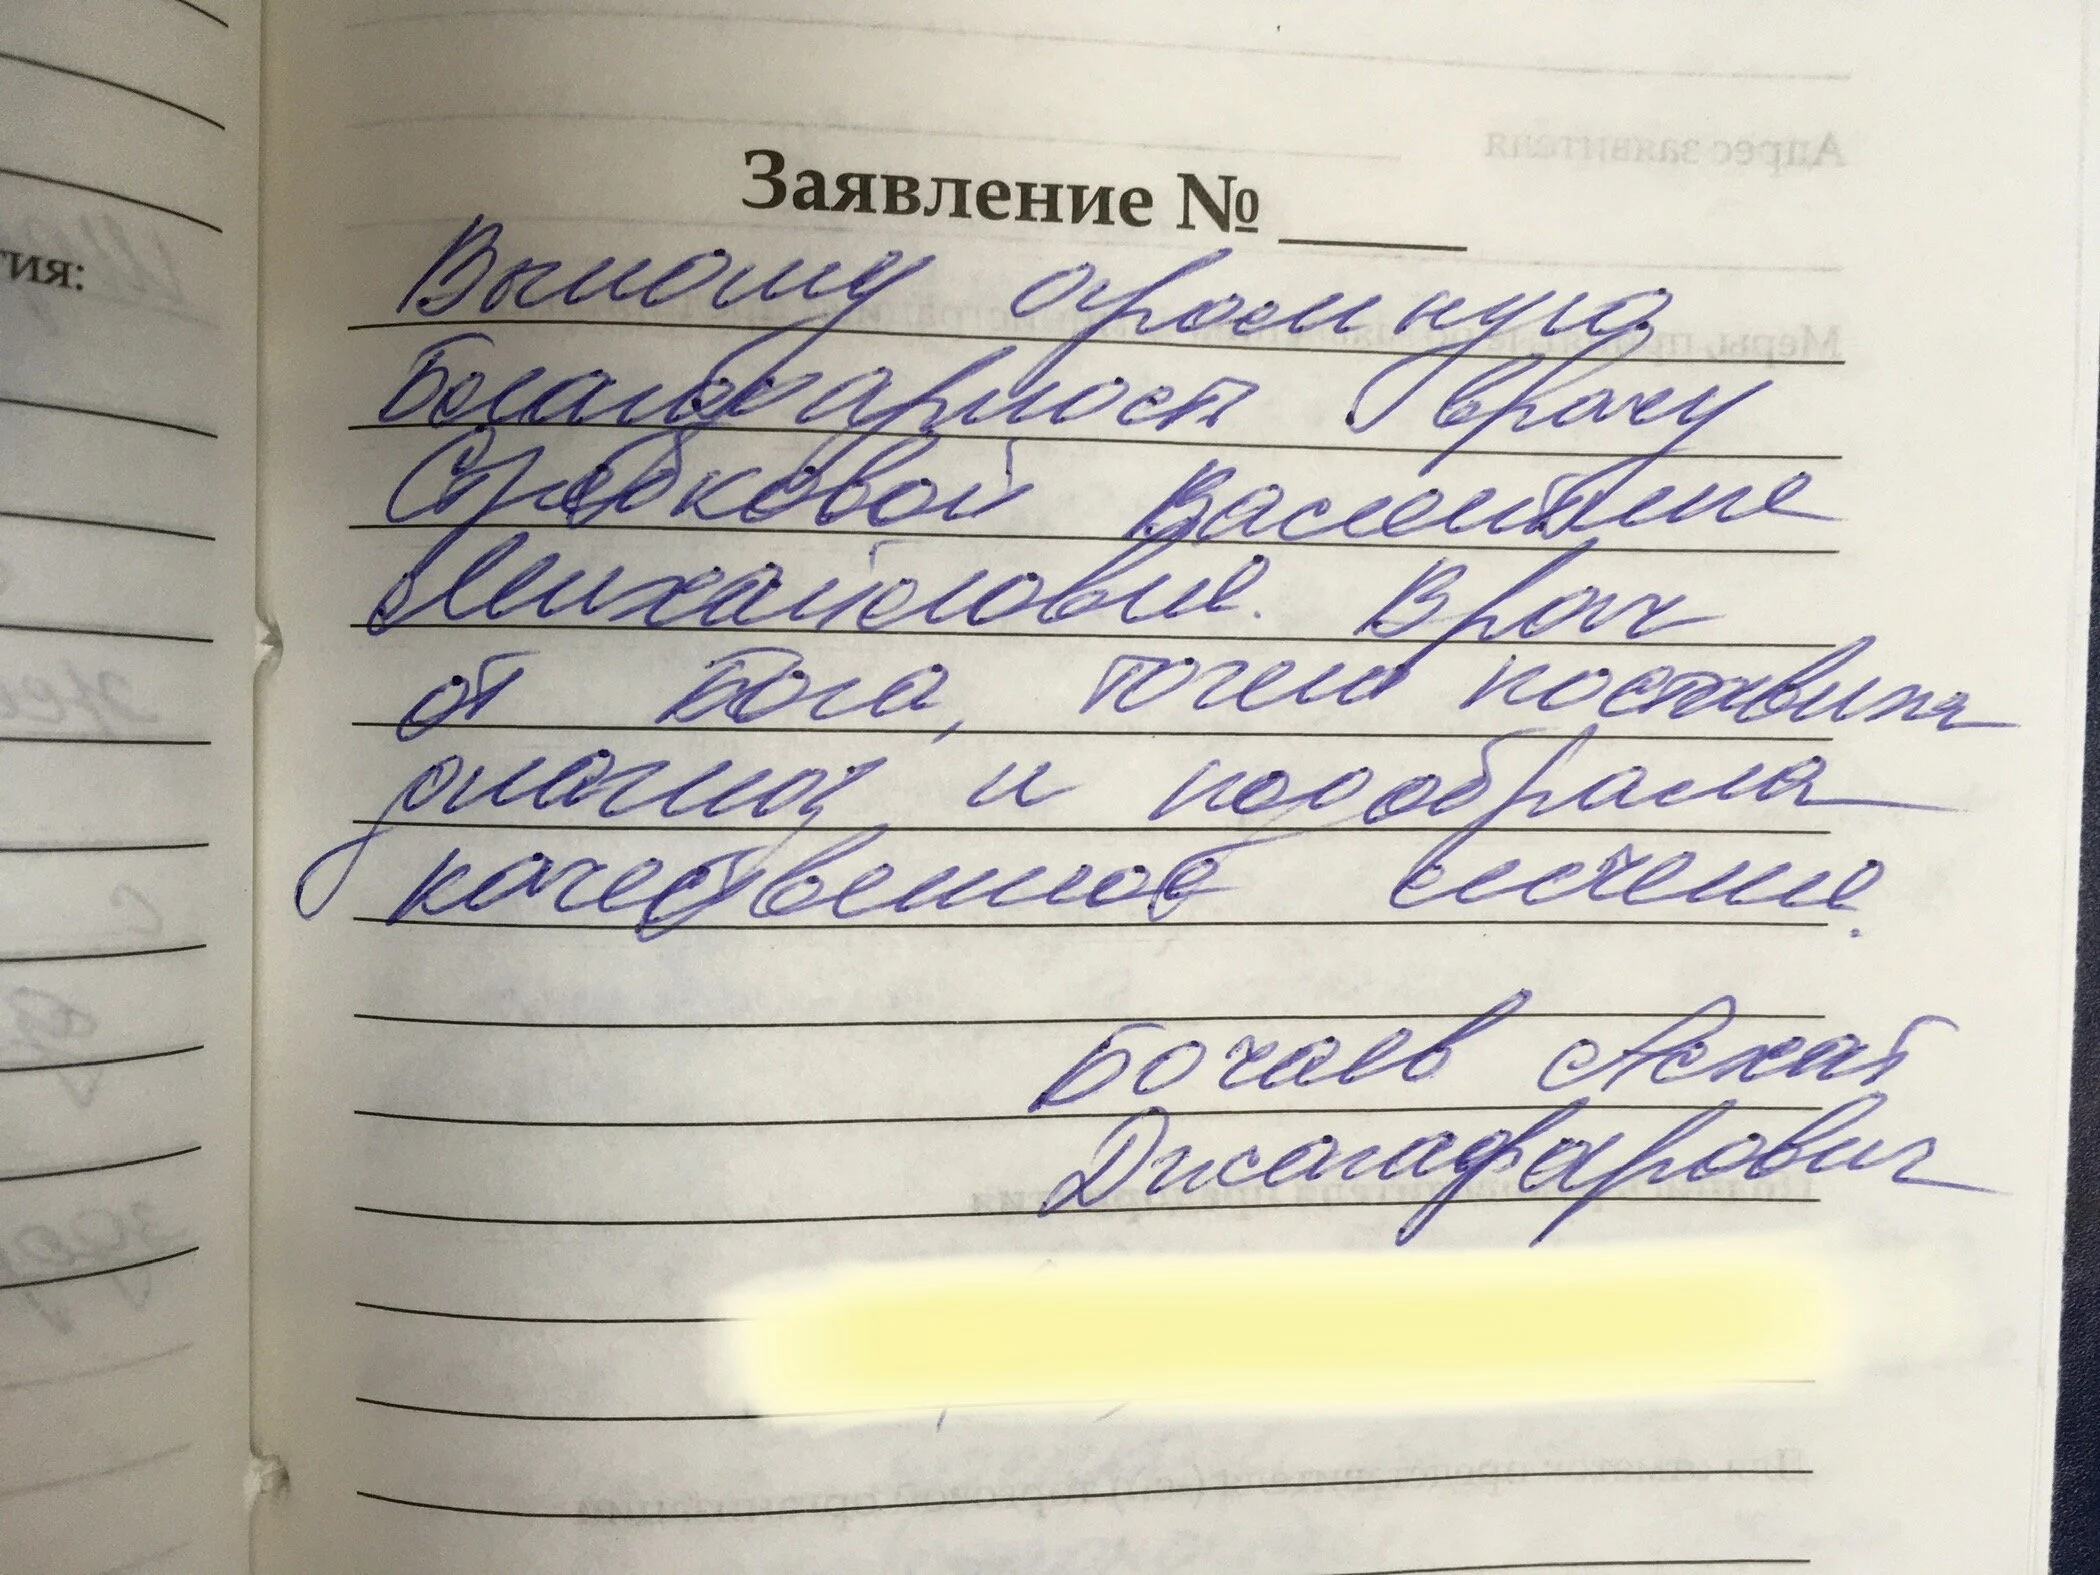 Заявление №
Выношу огромную
Благодарность врачу
Валентине
Михайловне. Врач
от Бога, точно поставила
диагноз и подобрала
качественное лечение.
Бочаев Асхат
Джагафарович
тия:
Адрес заявителя